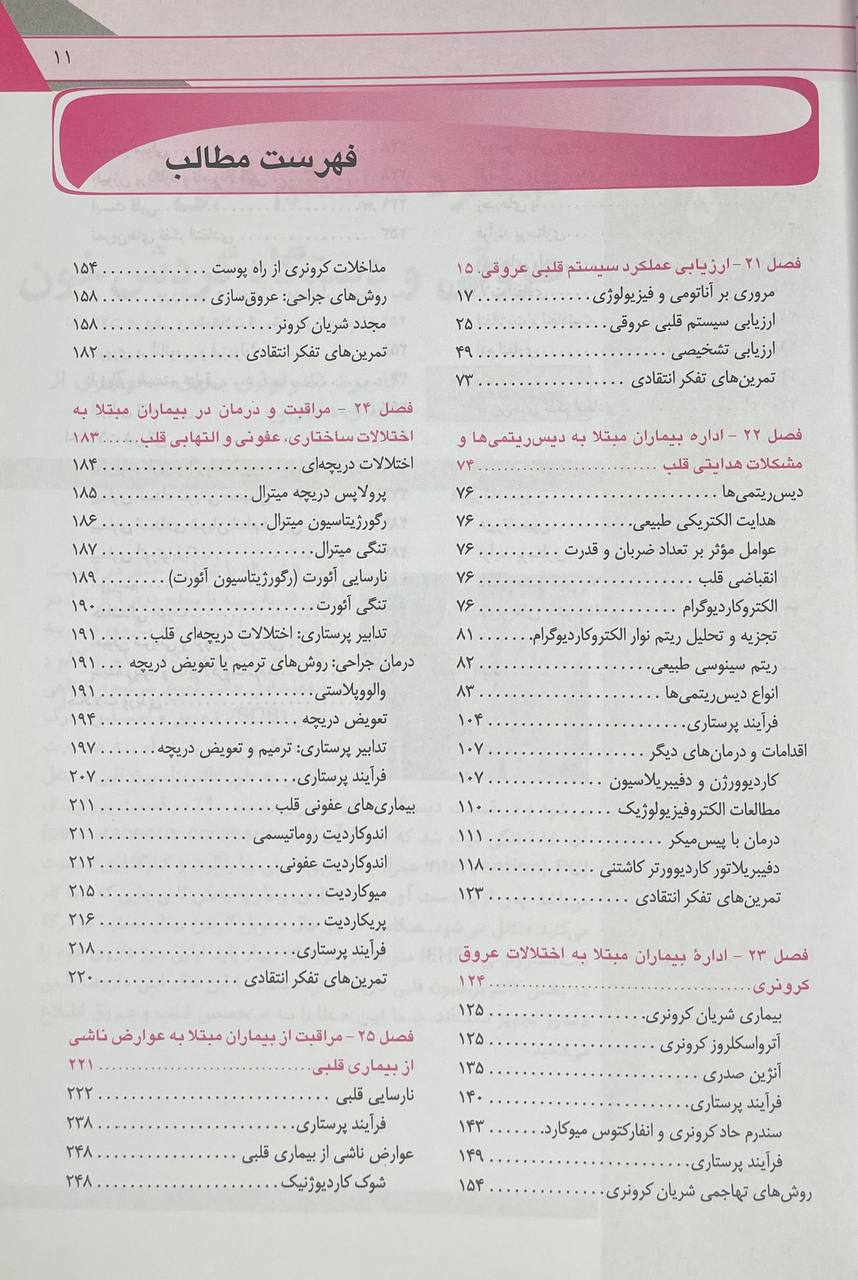 ۱۱
فهرست مطالب
فصل ۲۱- ارزیابی عملکرد سیستم قلبی عروقی. ۱۵
مروری بر آناتومی و فیزیولوژی.............. ۱۷
ارزیابی سیستم قلبی عروقی................ ۲۵
ارزیابی تشخیصی ....................... ۴۹
تمرین‌های تفکر انتقادی .................. ۷۳
فصل ۲۲ - اداره بیماران مبتلا به دیس‌ریتمی‌ها و
مشکلات هدایتی قلب .............................. ۷۴
دیس‌ریتمی‌ها ............................ ۷۶
هدایت الکتریکی طبیعی................... ۷۶
عوامل مؤثر بر تعداد ضربان و قدرت .......... ۷۶
انقباضی قلب .......................... ۷۶
الکتروکاردیوگرام ........................ ۷۶
تجزیه و تحلیل ریتم نوار الکتروکاردیوگرام....... ۸۱
ریتم سینوسی طبیعی..................... ۸۲
انواع دیس‌ریتمی‌ها ...................... ۸۳
فرآیند پرستاری........................ ۱۰۴
اقدامات و درمان‌های دیگر ................... ۱۰۷
کاردیوورژن و دفیبریلاسیون .............. ۱۰۷
مطالعات الکتروفیزیولوژیک ................ ۱۱۰
درمان با پیس‌میکر ..................... ۱۱۱
دفیبریلاتور کاردیوورتر کاشتنی ............. ۱۱۸
تمرین‌های تفکر انتقادی ................. ۱۲۳
فصل ۲۳ - ادارهٔ بیماران مبتلا به اختلالات عروق
کرونری ........................................ ۱۲۴
بیماری شریان کرونری................... ۱۲۵
آترواسکلروز کرونری .................... ۱۲۵
آنژین صدری ......................... ۱۳۵
فرآیند پرستاری........................ ۱۴۰
سندرم حاد کرونری و انفارکتوس میوکارد....... ۱۴۳
فرآیند پرستاری........................ ۱۴۹
روش‌های تهاجمی شریان کرونری.............. ۱۵۴
مداخلات کرونری از راه پوست ............ ۱۵۴
روش‌های جراحی: عروق‌سازی ............. ۱۵۸
مجدد شریان کرونر .................... ۱۵۸
تمرین‌های تفکر انتقادی ................. ۱۸۲
فصل ۲۴ - مراقبت و درمان در بیماران مبتلا به
اختلالات ساختاری، عفونی و التهابی قلب ...... ۱۸۳
اختلالات دریچه‌ای ........................ ۱۸۴
پرولاپس دریچه میترال................... ۱۸۵
رگورژیتاسیون میترال.................... ۱۸۶
تنگی میترال.......................... ۱۸۷
نارسایی آئورت (رگورژیتاسیون آئورت) ........ ۱۸۹
تنگی آئورت .......................... ۱۹۰
تدابیر پرستاری: اختلالات دریچه‌ای قلب...... ۱۹۱
درمان جراحی: روش‌های ترمیم یا تعویض دریچه ... ۱۹۱
والووپلاستی.......................... ۱۹۱
تعویض دریچه ........................ ۱۹۴
تدابیر پرستاری: ترمیم و تعویض دریچه....... ۱۹۷
فرآیند پرستاری........................ ۲۰۷
بیماری‌های عفونی قلب ..................... ۲۱۱
اندوکاردیت روماتیسمی .................. ۲۱۱
اندوکاردیت عفونی...................... ۲۱۲
میوکاردیت .......................... ۲۱۵
پریکاردیت .......................... ۲۱۶
فرآیند پرستاری........................ ۲۱۸
تمرین‌های تفکر انتقادی ................. ۲۲۰
فصل ۲۵- مراقبت از بیماران مبتلا به عوارض ناشی
از بیماری قلبی................................ ۲۲۱
نارسایی قلبی ............................ ۲۲۲
فرآیند پرستاری........................ ۲۳۸
عوارض ناشی از بیماری قلبی ................. ۲۴۸
شوک کاردیوژنیک...................... ۲۴۸